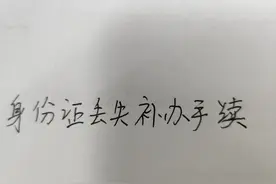 身份证丢失补办手续